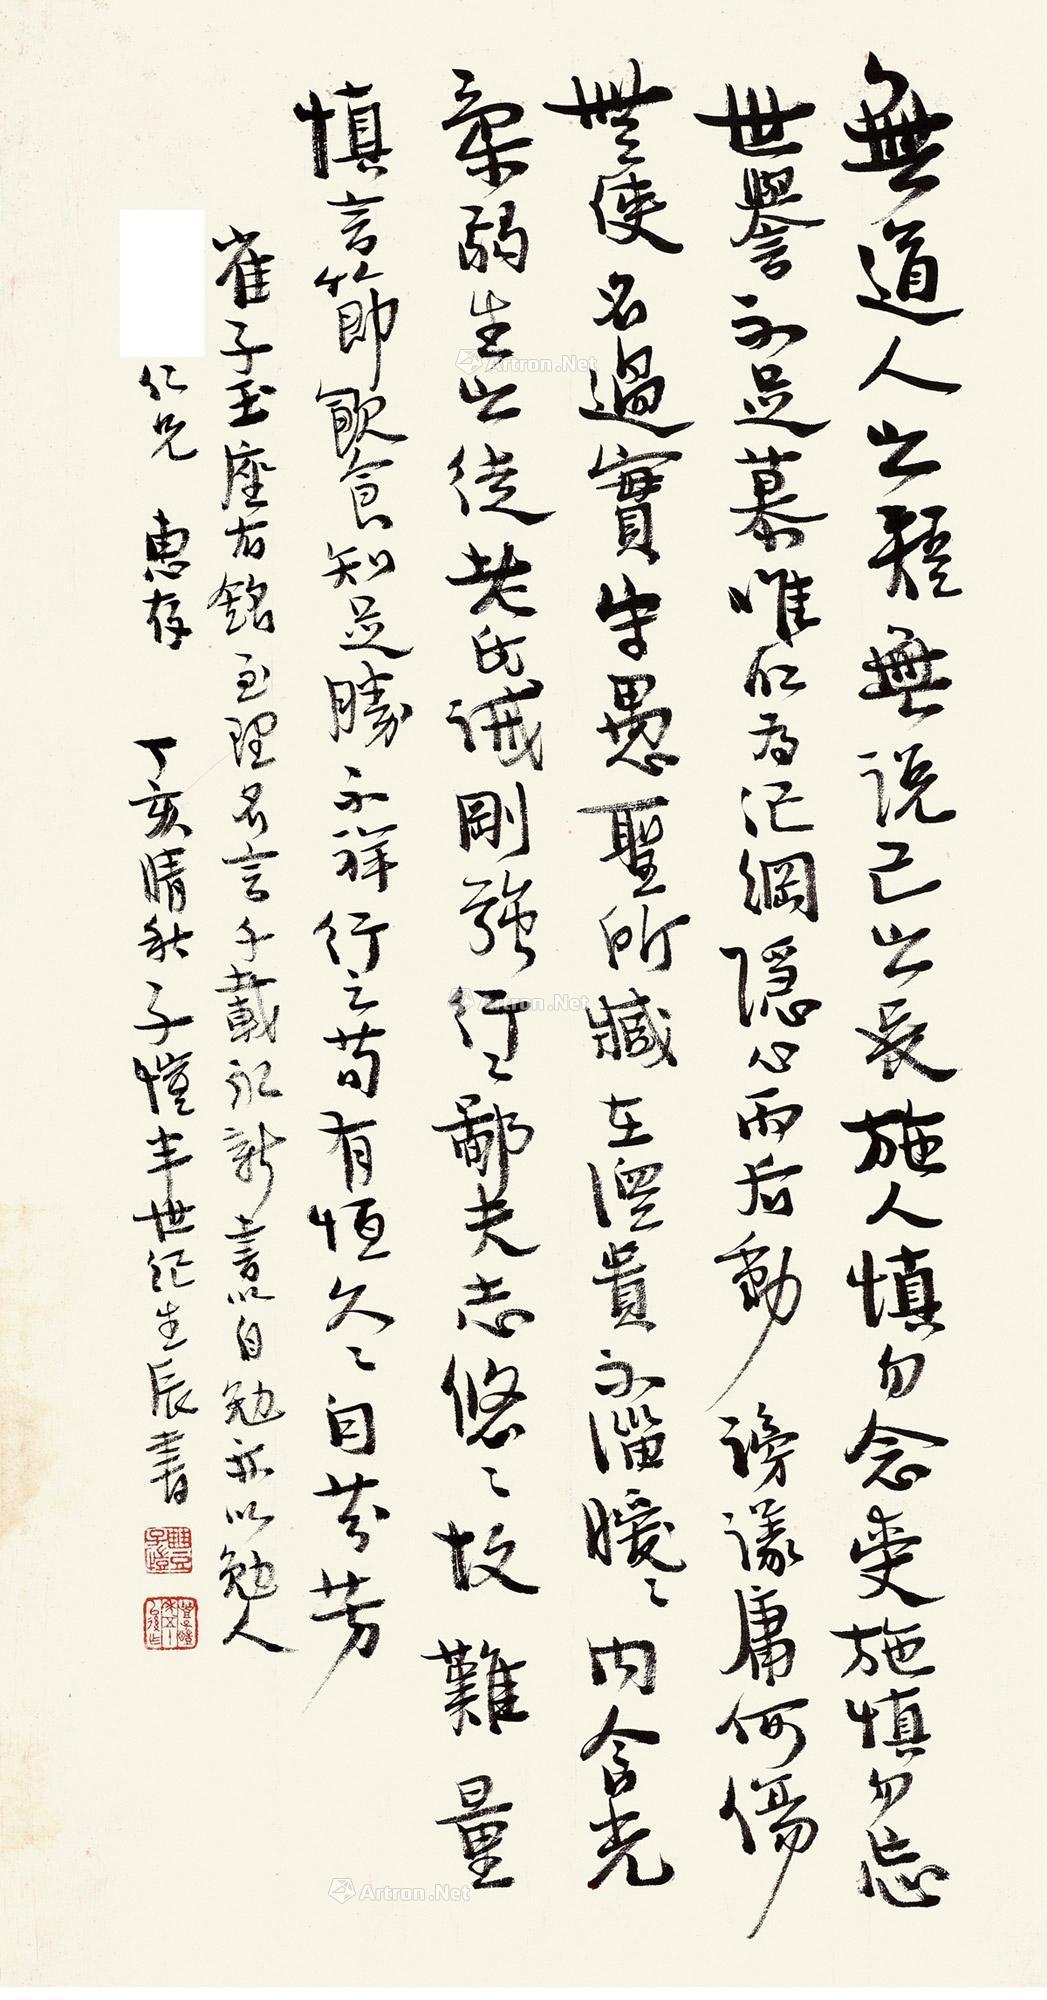 無道人之短無說己之長施人慎勿念受施慎勿忘
世譽不足慕唯仁為紀綱隱心而后動謗議庸何傷
無使名過實守愚聖所臧在涅貴不淄曖〻內含光
柔弱生之徒老氏誡剛強行〻鄙夫志悠〻故難量
慎言節飲食知足勝不祥行之苟有恆久〻自芬芳
崔子玉座右銘至理名言千載永新書以自勉亦以勉人
仁兄 惠存 丁亥晴秋子愷半世紀生辰書
Artron.Net
Artron.Net
Artron.Net